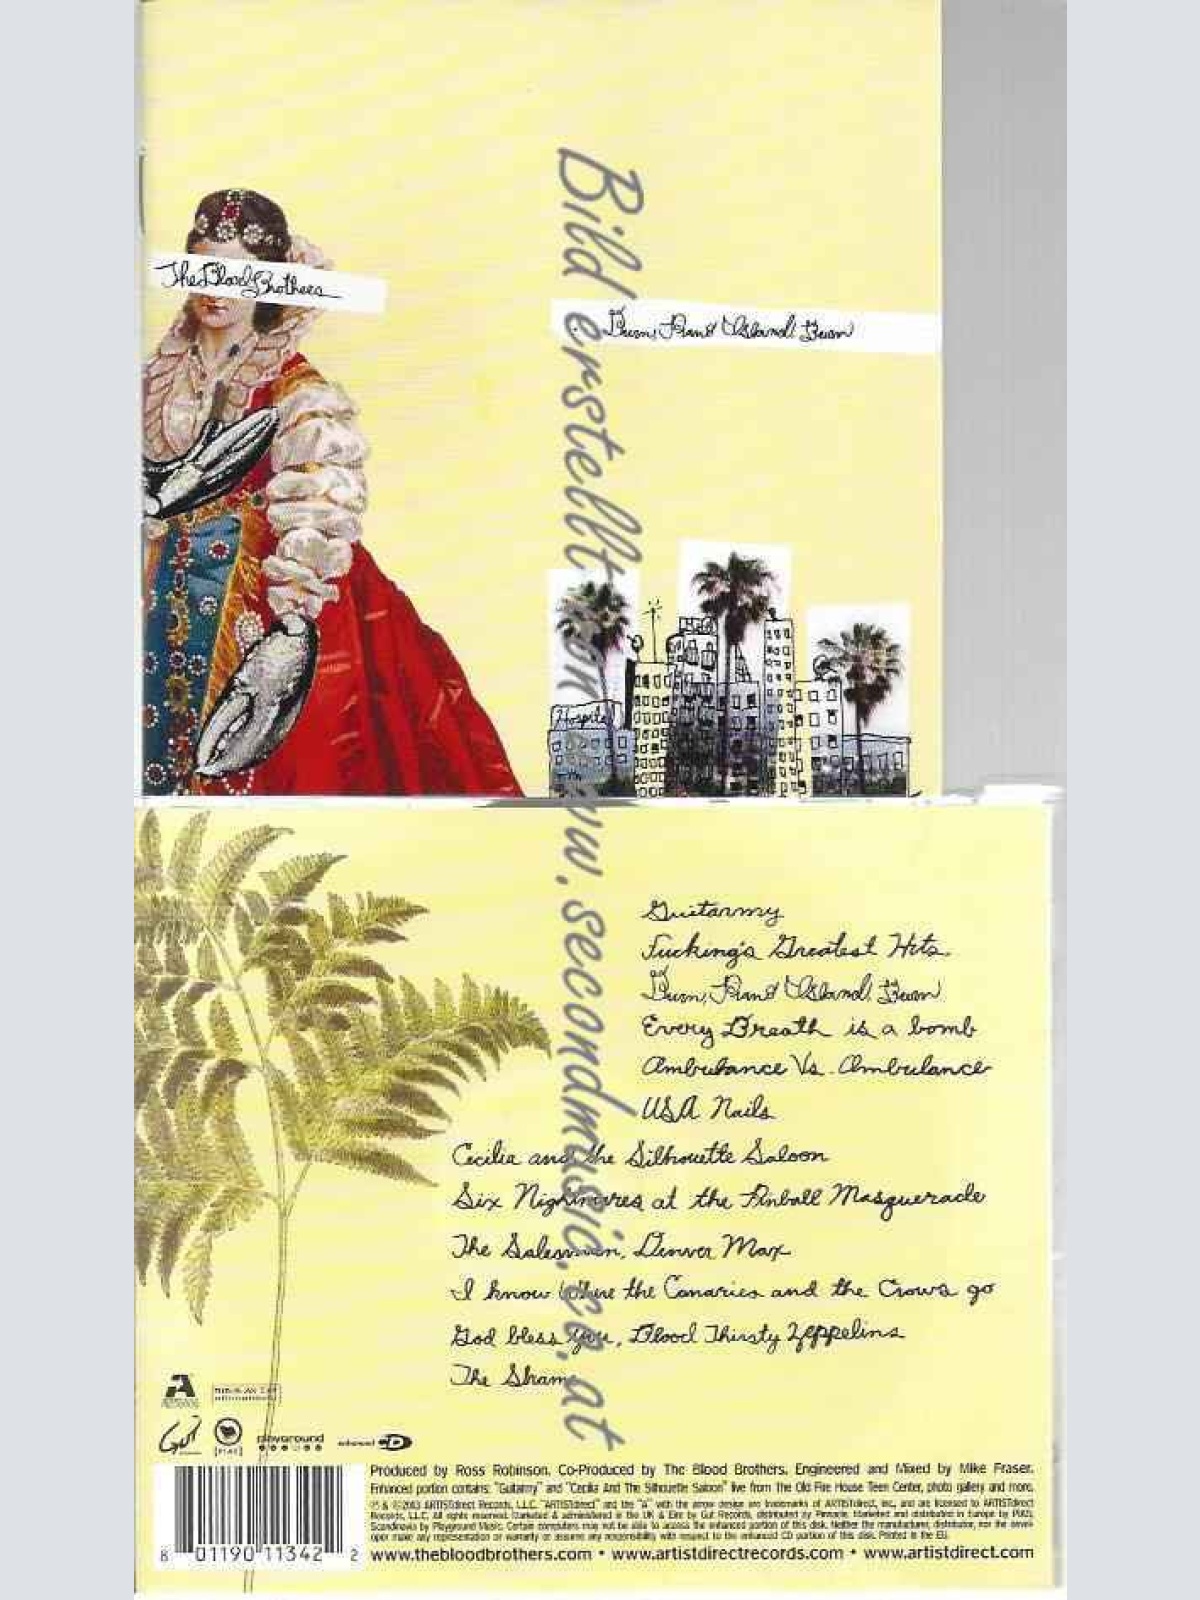 The Blood Brothers
Burn, Piano Island, Burn
Hospital
Bild erstellt von www.secondmusic.co.at
Guitarmy
Fucking's Greatest Hits
Burn, Piano Island, Burn
Every Breath is a bomb
Ambulance Vs. Ambulance
USA Nails
Cecilia and the Silhouette Saloon
Six Nightmares at the Pinball Masquerade
The Salesman, Denver Max
I know Where the Canaries and the Crows go
God bless you, Blood Thirsty Zeppelins
The Shame
A
Gut
[PIAS]
playground
enhanced CD
Produced by Ross Robinson. Co-Produced by The Blood Brothers. Engineered and Mixed by Mike Fraser.
Enhanced portion contains: "Guitarmy" and "Cecilia And The Silhouette Saloon" live from The Old Fire House Teen Center, photo gallery and more.
℗ & ©2003 ARTISTdirect Records, L.L.C. "ARTISTdirect" and the "A" with the arrow design are trademarks of ARTISTdirect, Inc., and are licensed to ARTISTdirect
Records, L.L.C. All rights reserved. Marketed & administered in the UK & Eire by Gut Records, distributed by Pinnacle. Marketed and distributed in Europe by PIAS,
Scandinavia by Playground Music. Certain computers may not be able to access the enhanced portion of this disk. Neither the manufacturer, distributor, nor the devel-
oper make any representation or warranty or assume any responsibility with respect to the enhanced CD portion of this disk. Printed in the EU.
8 01190 11342 2
www.thebloodbrothers.com • www.artistdirectrecords.com • www.artistdirect.com